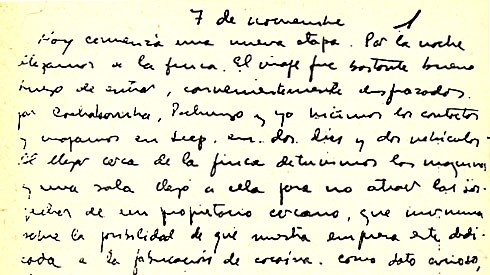 7 de noviembre 1
Hoy comienza una nueva etapa. Por la noche
llegamos a la finca. El viaje fue bastante bueno.
luego de entrar, convenientemente disfrazados
por Cochabamba, Pachungo y yo hicimos los contactos
y viajamos en Jeep. en. dos. días y dos vehículos.
Al llegar cerca de la finca detuvimos las máquinas
y una sola llegó a ella para no atraer las sos-
pechas de un propietario cercano, que murmura
sobre la posibilidad de que nuestra empresa esté dedi-
cada a la fabricación de cocaína. como dato curioso,